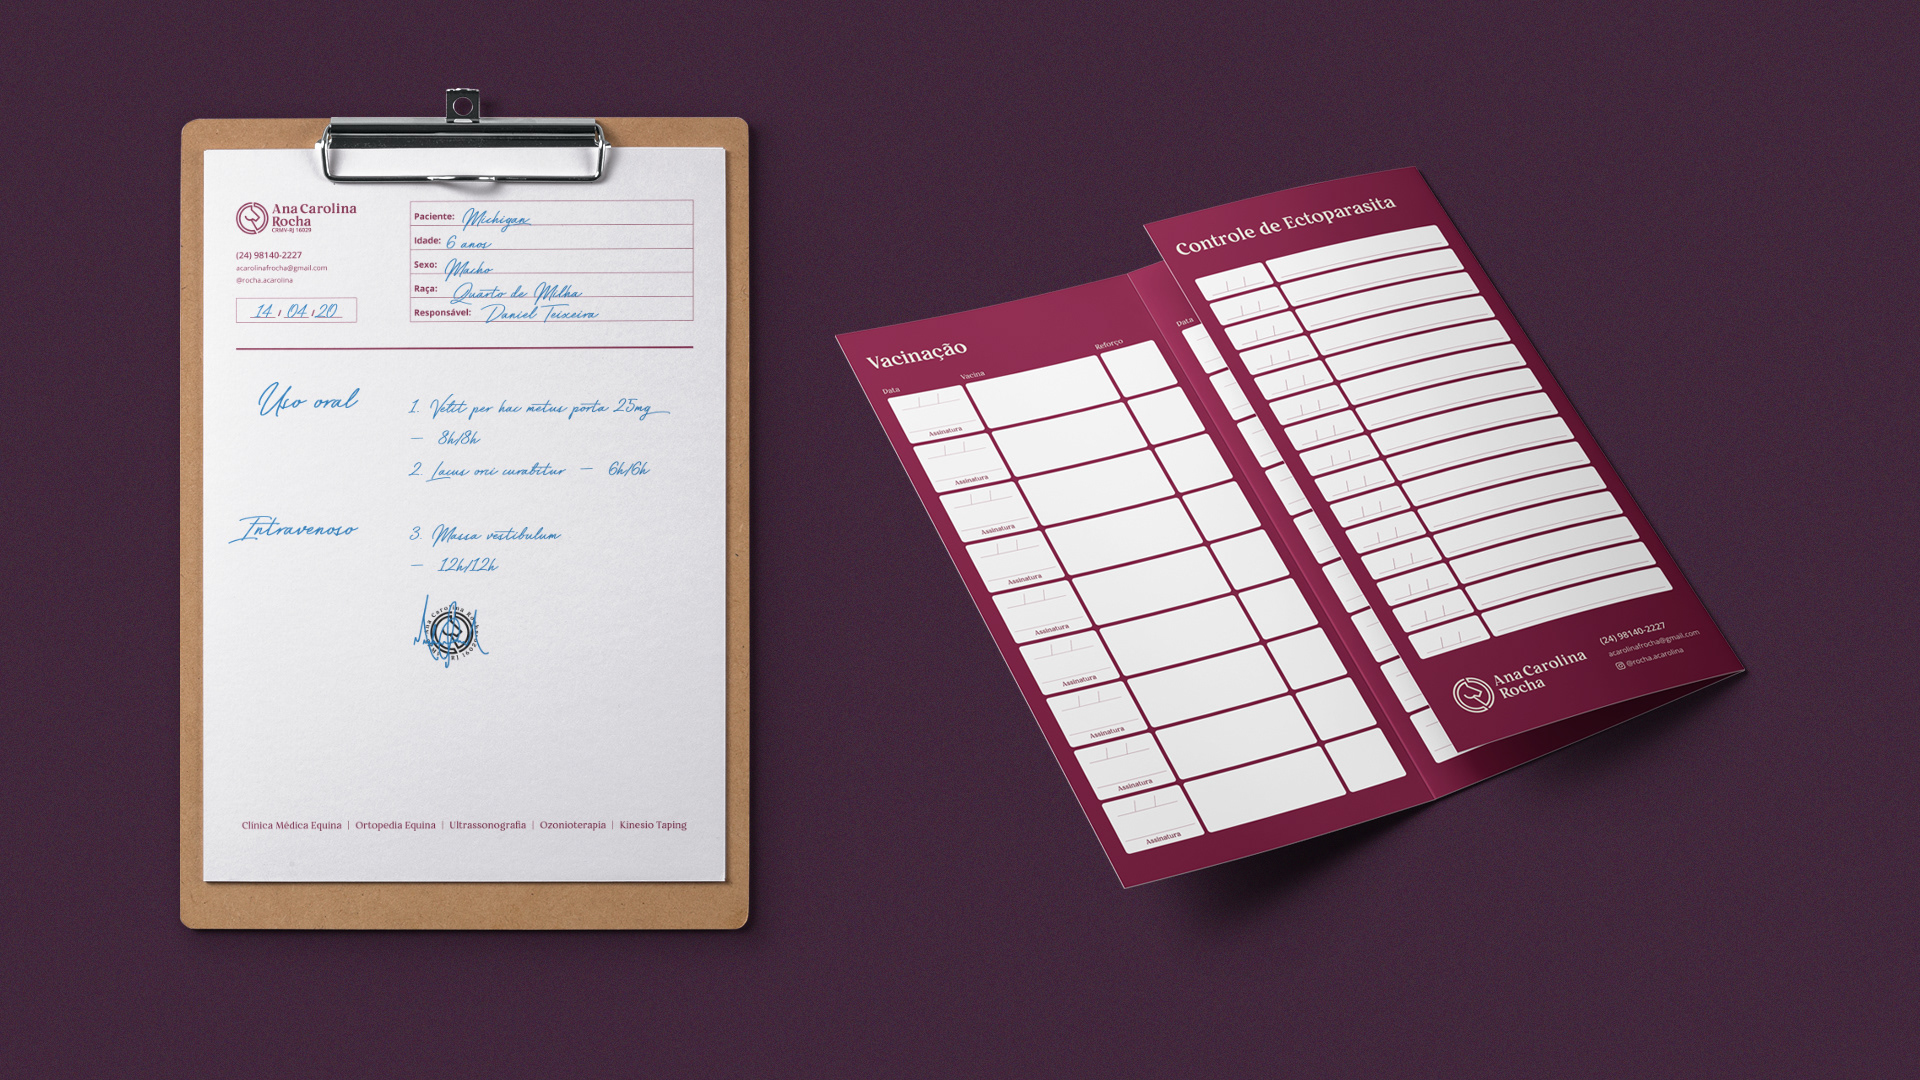 Ana Carolina
Rocha
CRMV-RJ 16029
(24) 98140-2227
acarolinafrocha@gmail.com
@rocha.acarolina
14 / 04 / 20
Paciente: Michigan
Idade: 6 anos
Sexo: Macho
Raça: Quarto de Milha
Responsável: Daniel Teixeira
Uso oral
1. Velit per hac metus porta 25mg
— 8h/8h
2. Lacus orci curabitur — 6h/6h
Intravenoso
3. Massa vestibulum
— 12h/12h
Clínica Médica Equina | Ortopedia Equina | Ultrassonografia | Ozonioterapia | Kinesio Taping
Vacinação
Data Vacina Reforço
Assinatura
Assinatura
Assinatura
Assinatura
Assinatura
Assinatura
Assinatura
Assinatura
Assinatura
Data
Controle de Ectoparasita
Ana Carolina
Rocha
(24) 98140-2227
acarolinafrocha@gmail.com
@rocha.acarolina